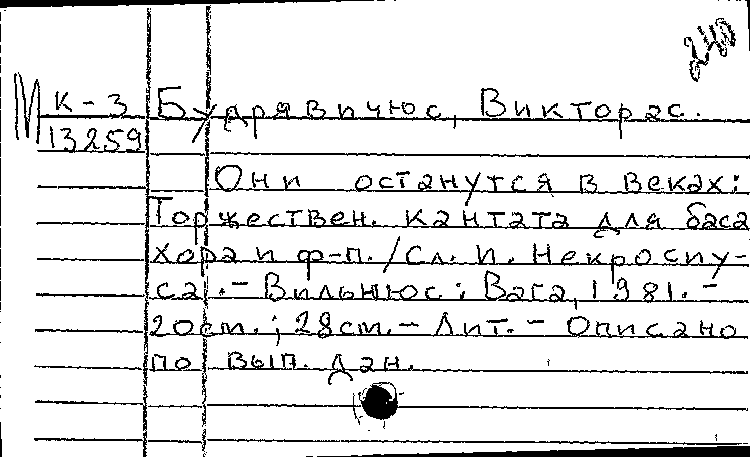 240
М К-3 Будрявичюс, Викторас.
13259
Они останутся в веках:
Торжествен. кантата для баса
хора и ф-п. / Сл. И. Некрошу-
са. - Вильнюс: Вага, 1981. -
20 ст.; 28 см. - Лит. - Описано
по вып. дан.